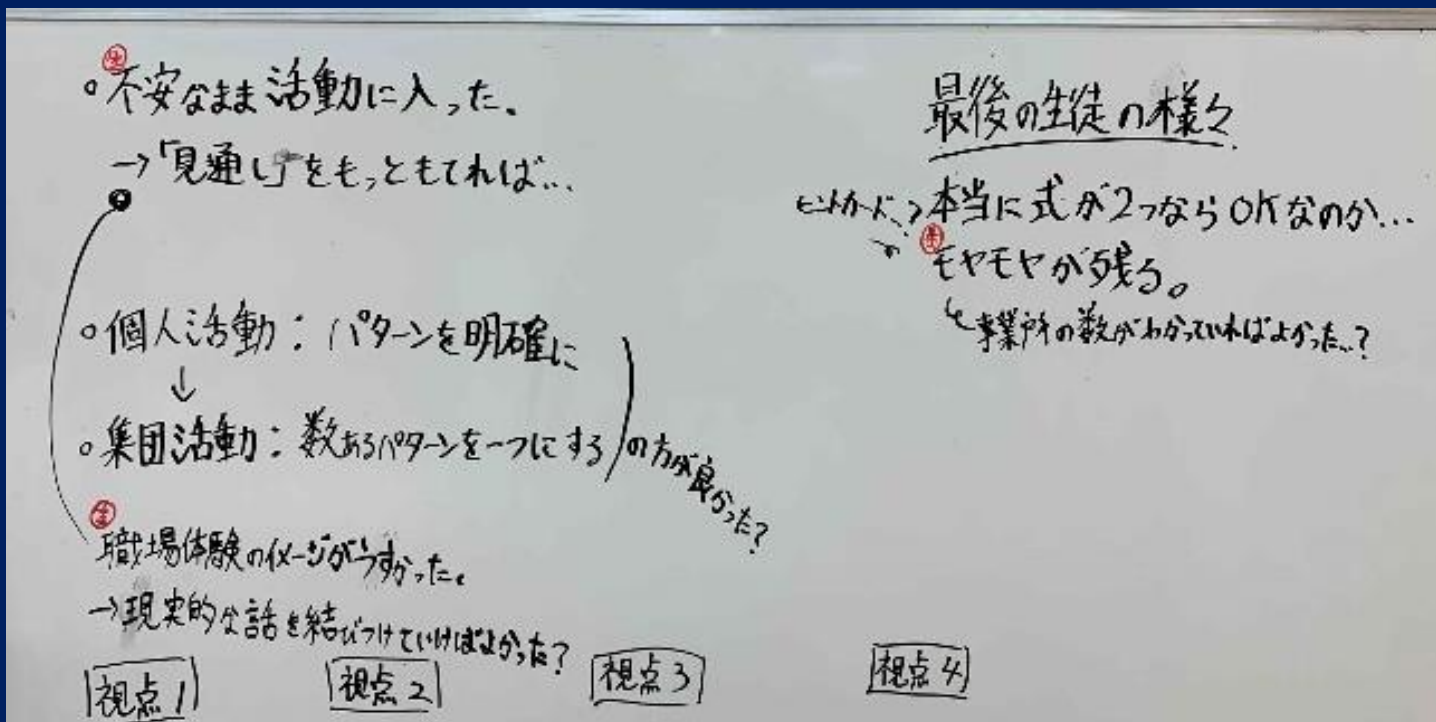 生
○不安なまま活動に入った。
→「見通し」をもっともてれば…
○個人活動：パターンを明確に
↓
○集団活動：数あるパターンを一つにする
の方が良かった？
生
職場体験のイメージがうすかった。
→現実的な話を結びつけていけばよかった？
視点1
視点2
視点3
視点4
最後の生徒の様々
ヒントカード→本当に式が2つならOKなのか…
モヤモヤが残る。
事業所の数がわかっていればよかった…？